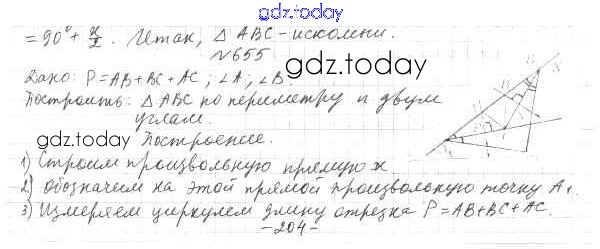 gdz.today
= 90° + x/2. Итак, △ ABC - искомый.
№655
gdz.today
Дано: P = AB + BC + AC; ∠A; ∠B.
Построить: △ ABC по периметру и двум
углам.
gdz.today Построение.
1) Строим произвольную прямую x
2) обозначим на этой прямой произвольную точку A₁.
3) Измеряем циркулем длину отрезка P = AB + BC + AC.
- 204 -